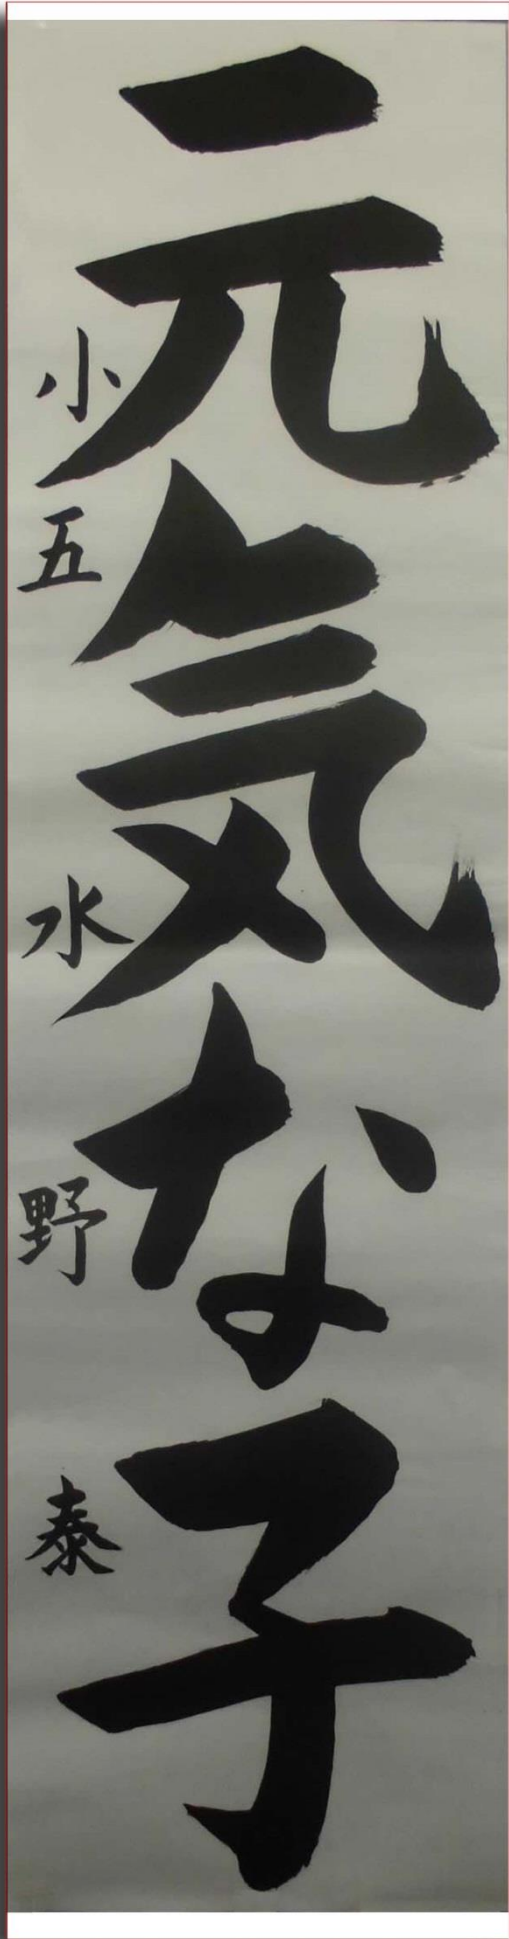 元気な子
小五 水野泰